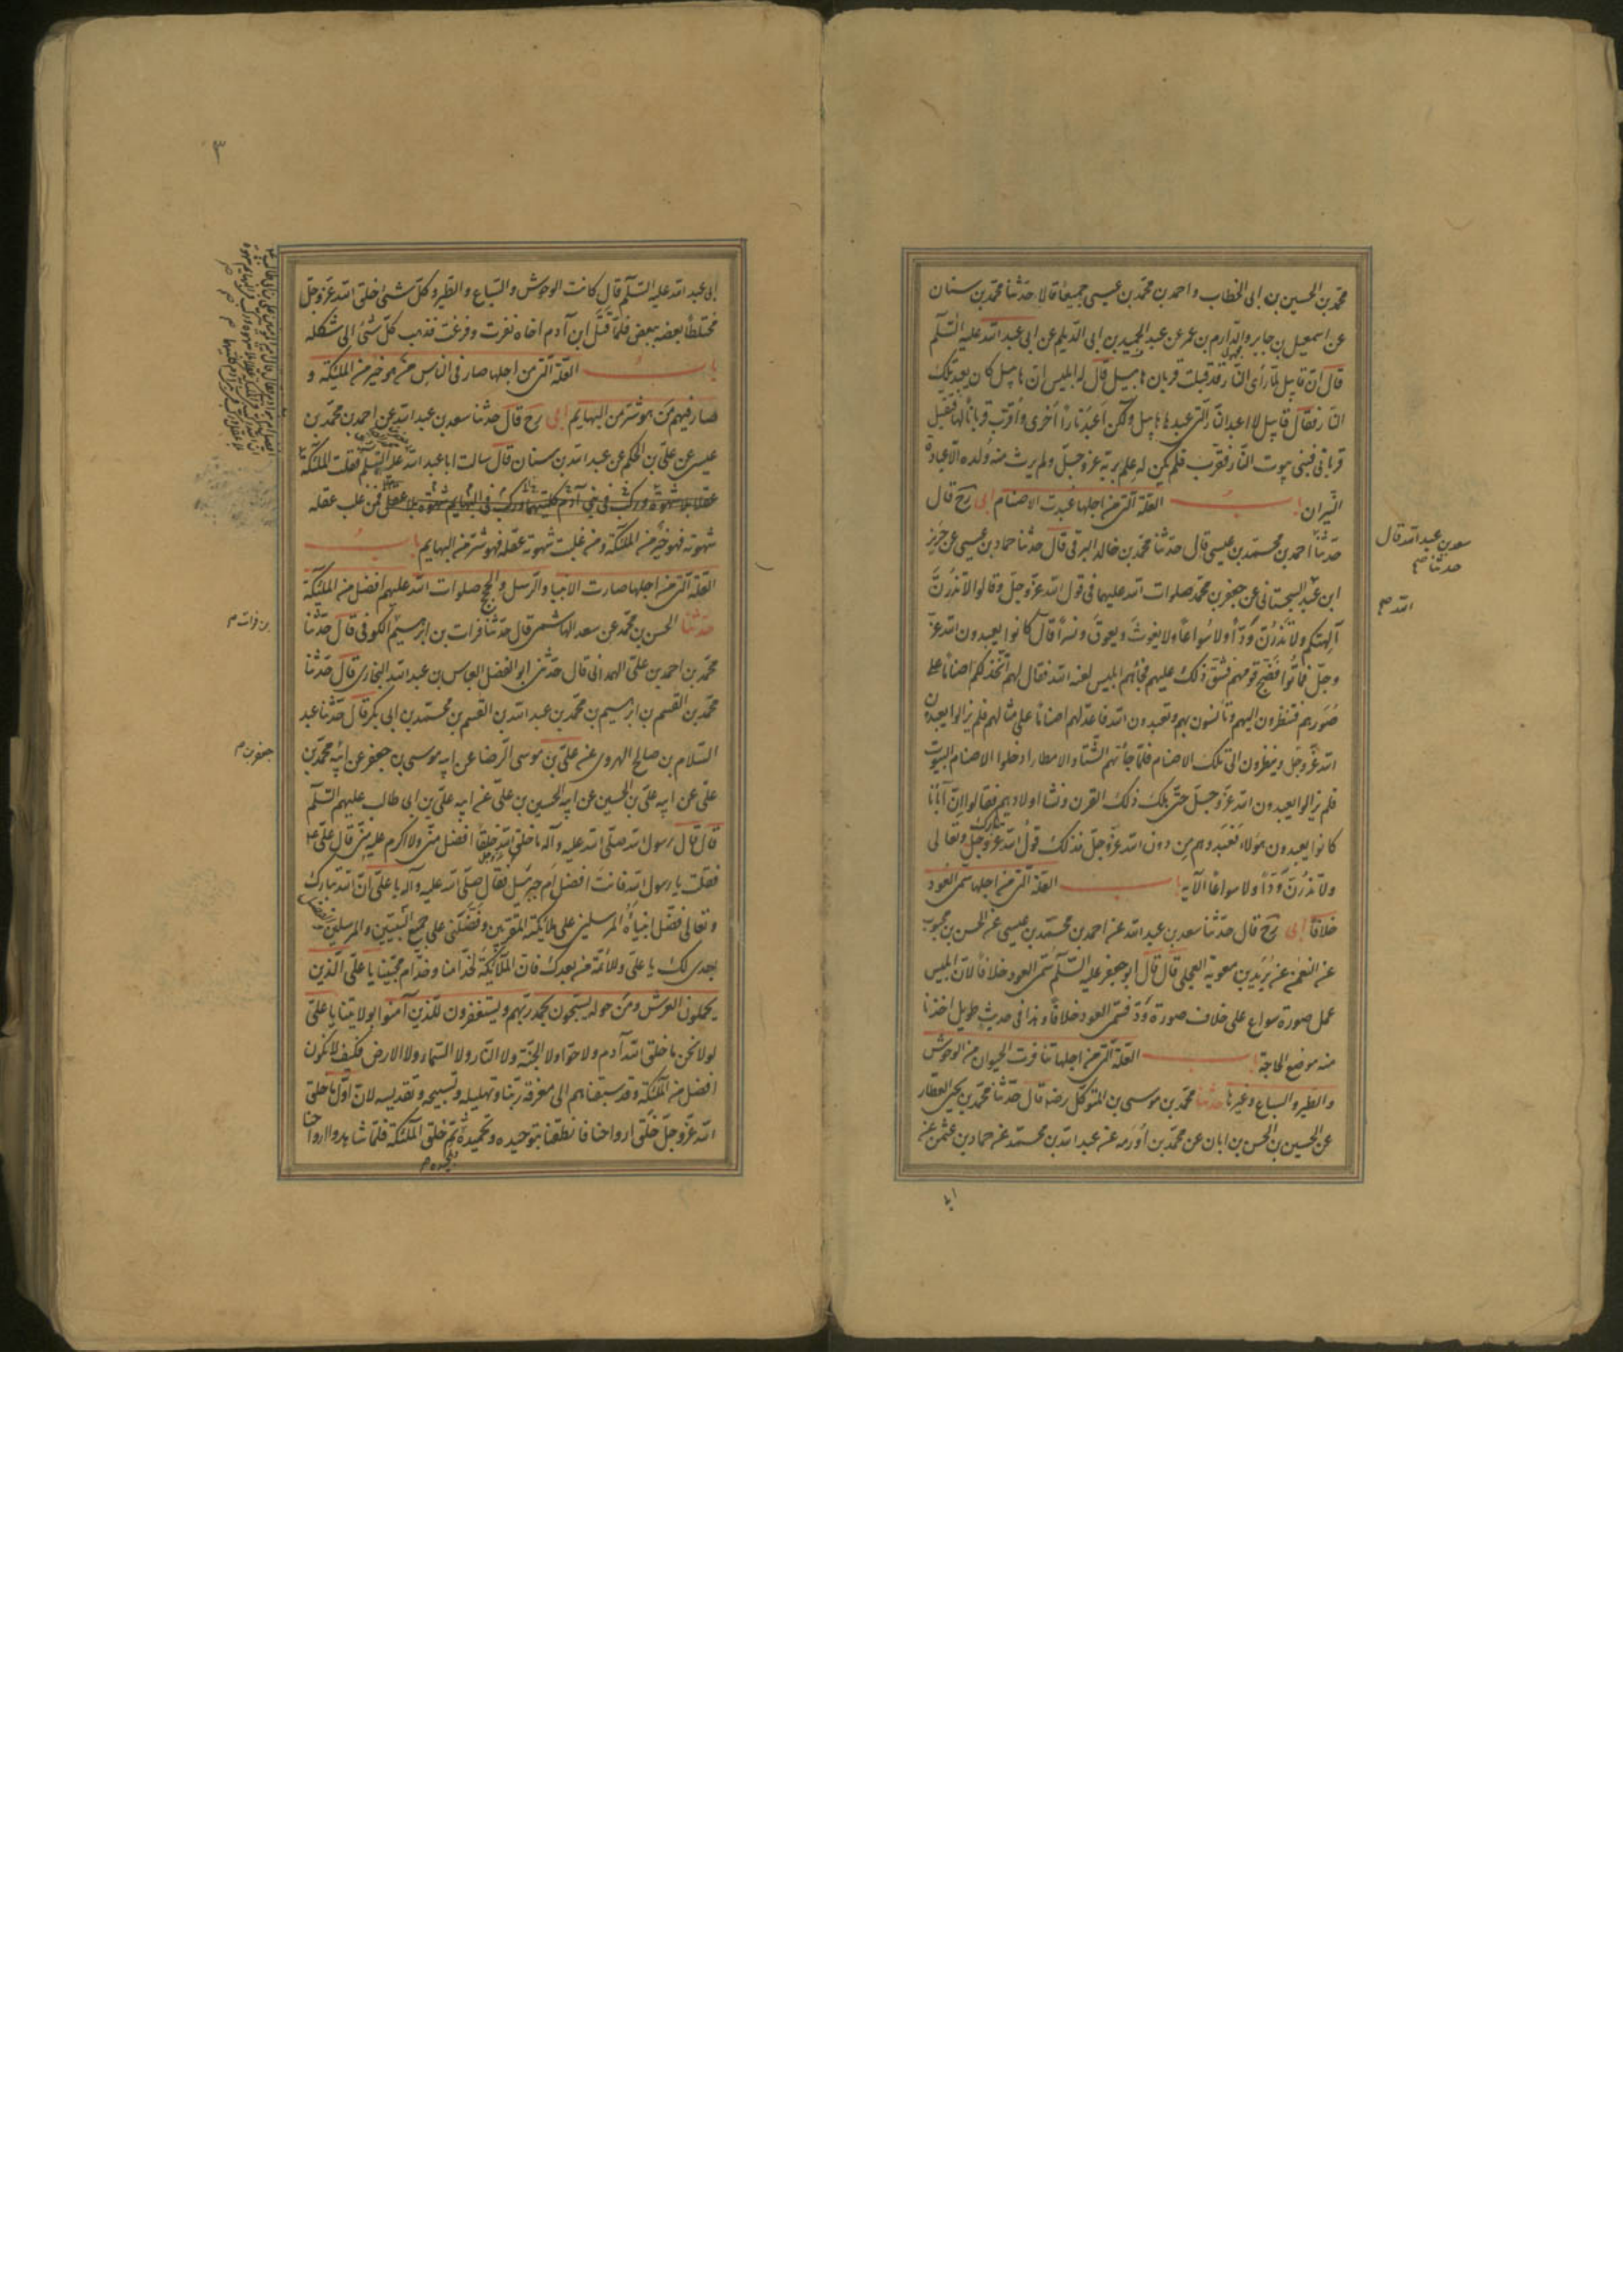 محمّد بن الحسين بن ابى الخطاب و احمد بن محمّد بن عيسى جميعًا قالا حدّثنا محمّد بن سنان
عن اسمعيل بن جابر و الدارم بن عمر عن عبد الحميد بن ابى الدّيلم عن ابى عبد الله عليه السّلم
قال انّ قابيل لمّا رأى النّار قد قبلت قربان هابيل قال له ابليس انّ هابيل كان يعبد تلك
النّار فقال قابيل لا اعبد النّار التى عبدها هابيل ولكن اَعبُد نارًا اخرى و اُقرّب قربانًا لها فتقبل
قربانى فبنى بيوت النّار فقرّب فلم يكن له علم بربّه عزّ وجلّ ولم يرث منه ولده الّا عبادة
النّيران باب العلّة التى من اجلها عُبدت الاصنام ابى رح قال
حدّثنا احمد بن محمّد بن عيسى قال حدّثنا محمّد بن خالد البرقى قال حدثنا حماد بن عيسى عن حريز
ابن عبد السجستانى عن جعفر بن محمّد صلوات الله عليهما فى قول الله عزّ وجلّ وقالوا لا تذرنّ
آلهتكم ولا تذرنّ وَدّاً ولا سُواعًا ولا يغوثَ ويعوقَ ونسرًا قال كانوا يعبدون الله عزّ
وجلّ فماتُوا فضجّ قومهم فشقّ ذلك عليهم فجاءهم ابليس لعنه الله فقال لهم اتّخذ لكم اصنامًا على
صُوَرهم فتنظرون اليهم وتأنسون بهم وتعبدون الله فاعدّ لهم اصنامًا على مثالهم فلم يزالوا يعبدون
الله عزّ وجلّ وينظرون الى تلك الاصنام فلمّا جاءهم الشّتاء والامطار ادخلوا الاصنام البيوت
فلم يزالوا يعبدون الله عزّ وجلّ حتّى هلك ذلك القرن ونشا اولادهم فقالوا انّ آبائنا
كانوا يعبدون هؤلاء فعَبَدوهم من دون الله عزّ وجلّ فذلك قول الله عزّ وجلّ تبارك وتعالى
ولا تذرُنَّ وَدّاً ولا سواعًا الآية باب العلّة التى من اجلها سمّى العُود
خلافًا ابى رح قال حدّثنا سعد بن عبد الله عن احمد بن محمّد بن عيسى عن الحسن بن محبوب
عن النعمن عن بُرَيد بن معوية العجلى قال قال ابو جعفر عليه السّلم سُمّى العود خلافًا لانّ ابليس
عمل صورة سواع على خلاف صورة وَدّ فسمّى العود خلافًا وهذا فى حديث طويل اخذنا
منه موضع الحاجة باب العلّة التى من اجلها تنافرت الحيوان من الوحوش
والطير والسباع وغيرها حدثنا محمّد بن موسى بن المتوكّل رضه قال حدّثنا محمّد بن يحيى العطار
عن الحسين بن الحسن بن ابان عن محمّد بن اُورَمه عن عبد الله بن محمّد عن حماد بن عثمن عن
سعد بن عبد الله قال
حدثنا صح
الله صح
٣
ابى عبد الله عليه السّلم قال كانت الوحوش والسّباع والطير وكلّ شىء خلق الله عزّ وجلّ
مختلطًا بعضه ببعض فلمّا قتل ابن آدم اخاه نفرت وفزعت فذهب كلّ شىء الى شكله
باب العلّة التى من اجلها صار فى الناس من هو خير من الملئكة و
صار فيهم من هو شرّ من البهايم ابى رح قال حدثنا سعد بن عبد الله عن احمد بن محمّد بن
عيسى عن على بن الحكم عن عبد الله بن سنان قال سالت ابا عبد الله عليه السّلم فقلت الملئكة
عقلا بلا شهوة وركب فى بنى آدم كليتهما وركب فى البهايم شهوة بلا عقل فمن غلب عقله
شهوته فهو خير من الملئكة ومن غلبت شهوته عقله فهو شرّ من البهايم باب
العلّة التى من اجلها صارت الانبياء والرّسل والحجج صلوات الله عليهم افضل من الملئكة
حدّثنا الحسن بن محمّد عن سعد الهاشمى قال حدّثنا فرات بن ابرهيم الكوفى قال حدّثنا
محمّد بن احمد بن علىّ الهمدانى قال حدّثنى ابو الفضل العباس بن عبد الله البخارى قال حدّثنا
محمّد بن القسم بن ابرهيم بن محمّد بن عبد الله بن القسم بن محمّد بن ابى بكر قال حدّثنا عبد
السّلام بن صالح الهروى عن علىّ بن موسى الرّضا عن ابيه موسى بن جعفر عن ابيه محمّد بن
على عن ابيه علىّ بن الحسين عن ابيه الحسين بن على عن ابيه علىّ بن ابى طالب عليهم السّلم
قال قال رسول الله صلّى الله عليه وآله ما خلق الله خلقًا افضل منّى ولا اكرم عليه منّى قال علىّ ع
فقلت يا رسول الله فانت افضل ام جبرئيل فقال صلّى الله عليه وآله يا علىّ انّ الله تبارك
وتعالى فضّل انبياءه المرسلين على ملائكته المقرّبين وفضّلنى على جميع النّبيّين والمرسلين والفضل
بعدى لك يا علىّ وللائمّة من بعدك فانّ الملائكة لخدّامنا وخدّام محبّينا يا علىّ الّذين
يحملون العرش ومن حوله يسبّحون بحمد ربّهم ويستغفرون للّذين آمنوا بولايتنا يا علىّ
لولا نحن ما خلق الله آدم ولا حوّا ولا الجنّة ولا النّار ولا السّماء ولا الارض فكيف لا نكون
افضل من الملئكة وقد سبقناهم الى معرفة ربّنا وتهليله وتسبيحه وتقديسه لانّ اوّل ما خلق
الله عزّ وجلّ خلق ارواحنا فانطقنا بتوحيده وتحميده ثمّ خلق الملئكة فلمّا شاهدوا ارواحنا
بن فرات م
جعفر بن م